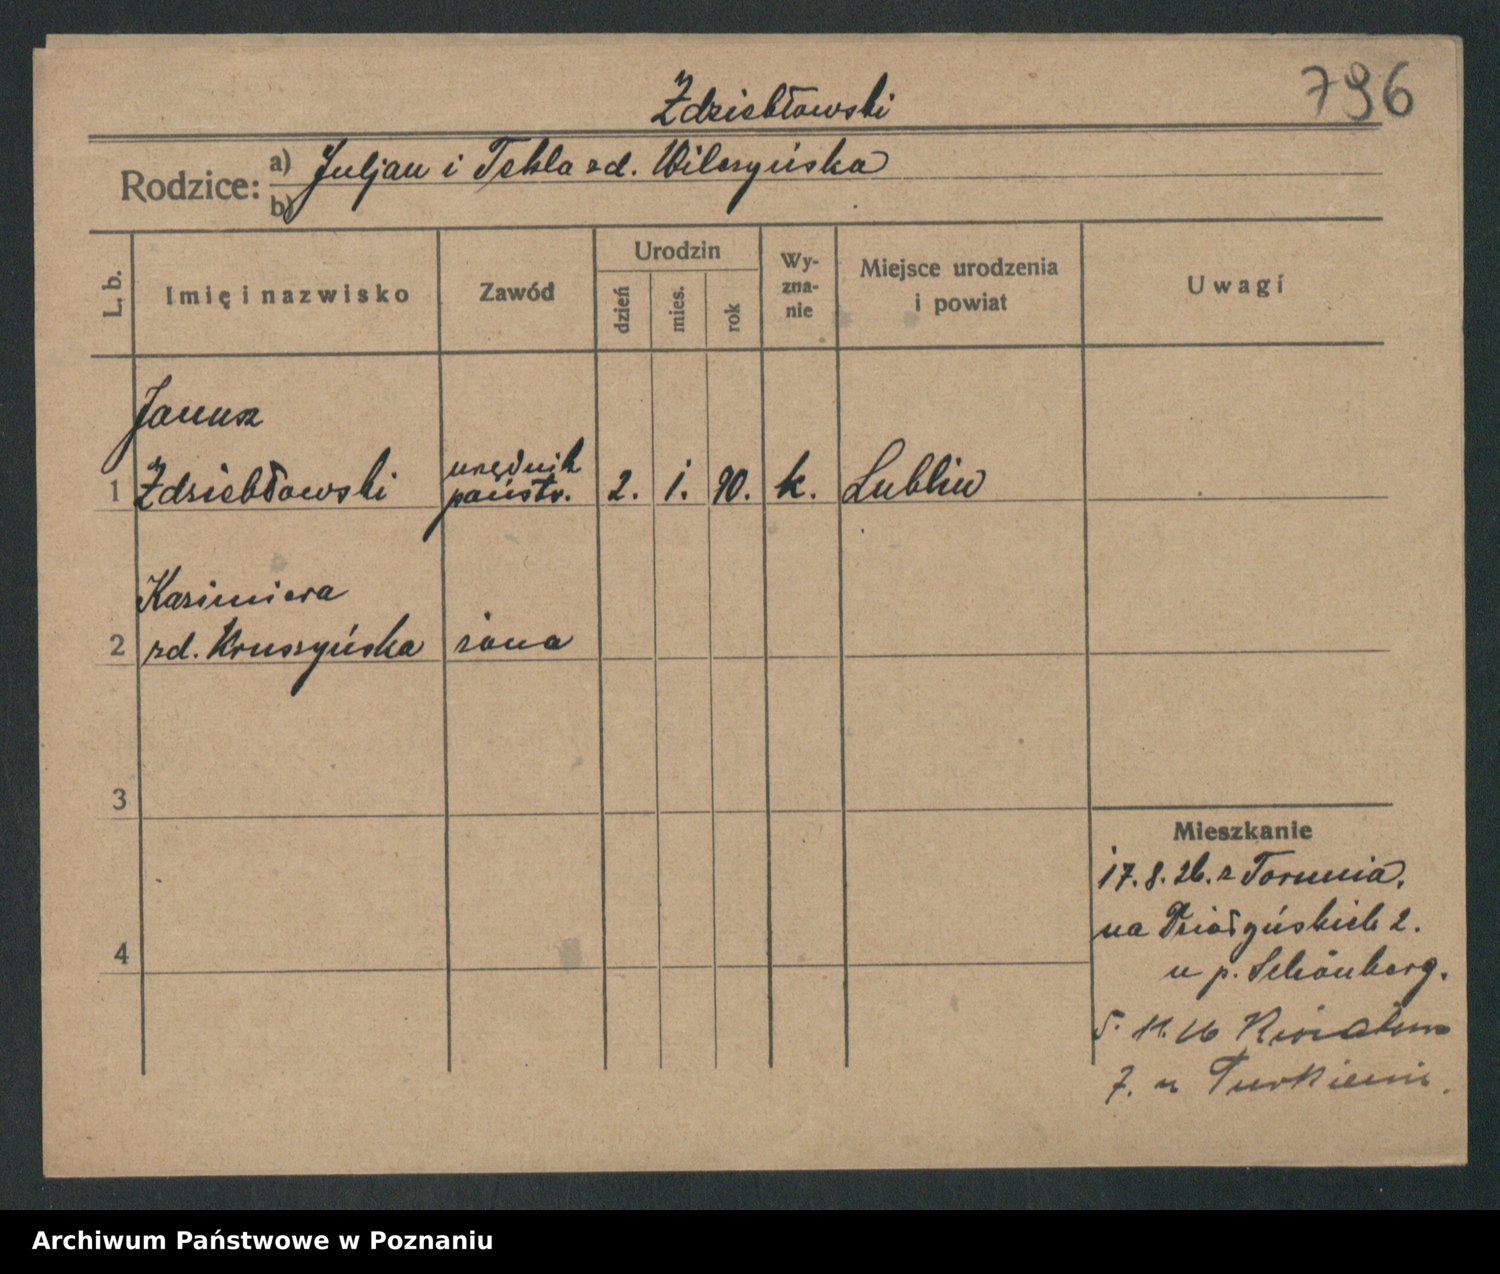 796
Zdziebłowski
Rodzice: a) Juljan i Tekla zd. Wilczyńska
b)
L. b.
Imię i nazwisko
Zawód
Urodzin
dzień
mies.
rok
Wy-
zna-
nie
Miejsce urodzenia
i powiat
Uwagi
Janusz
1 Zdziebłowski
urzędnik
państw.
2. 1. 90. k. Lublin
Kazimiera
2 zd. Kruszyńska żona
3
4
Mieszkanie
17.8.26. z Torunia.
na Działyńskich 2.
u p. Schönberg.
5. 11. 26
7. u
Archiwum Państwowe w Poznaniu